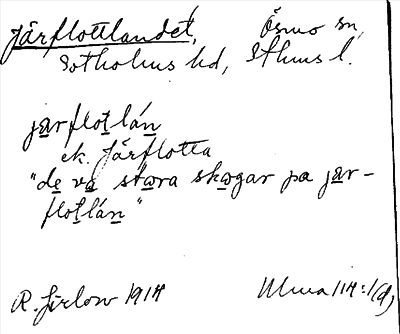 Järflottlandet, Ösmo sn,
Sotholms hd, Sthms l.
jarflotlán
ek. Järflotta
"de va stora skogar pa jar-
flotlán"
R. Jirlow 1914 Ulma 114:1(d)